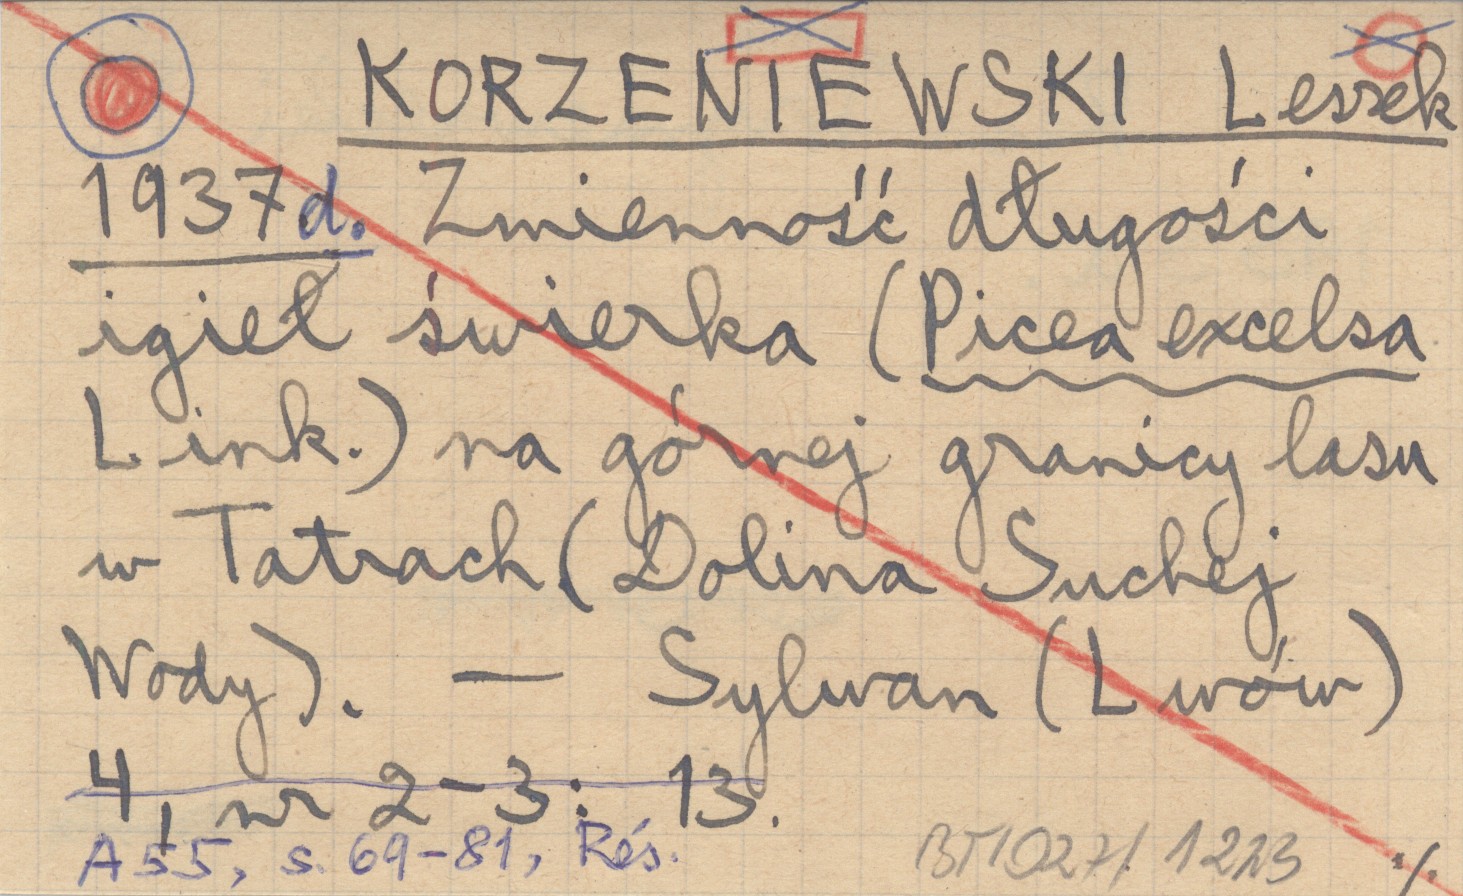 KORZENIEWSKI Leszek
1937d. Zmienność długości
igieł świerka (Picea excelsa
Link.) na górnej granicy lasu
w Tatrach (Dolina Suchej
Wody). — Sylwan (Lwów)
4, nr 2-3: 13.
A 55, s. 69-81, Rés.
1223
./.